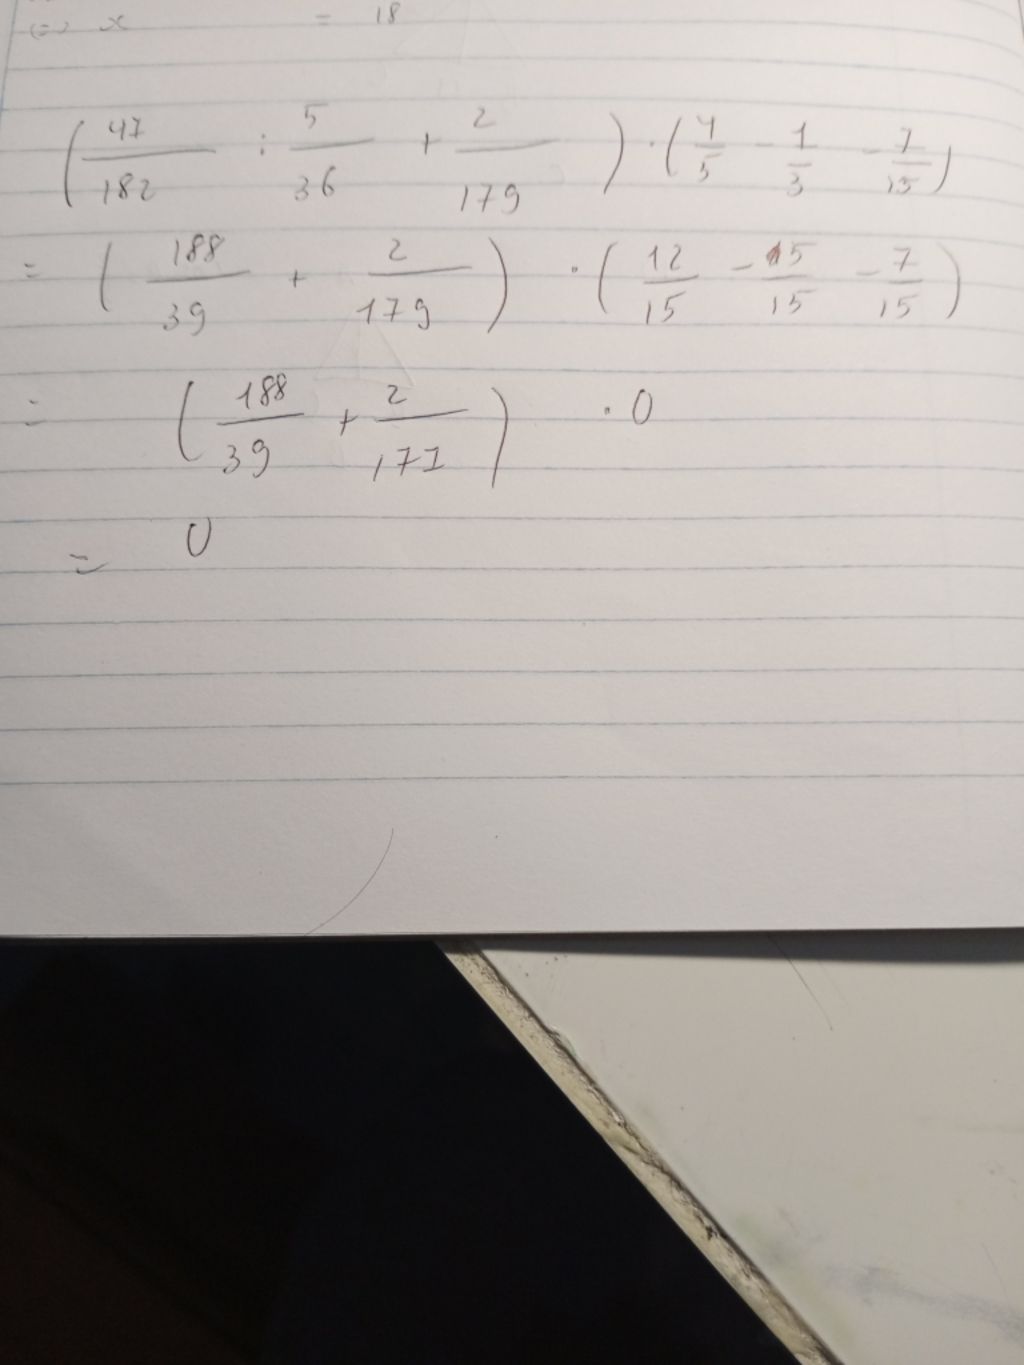 (=) x = 18
(47/182 : 5/36 + 2/179) · (4/5 - 1/3 - 7/15)
= (188/39 + 2/179) · (12/15 - 5/15 - 7/15)
= (188/39 + 2/177) · 0
= 0